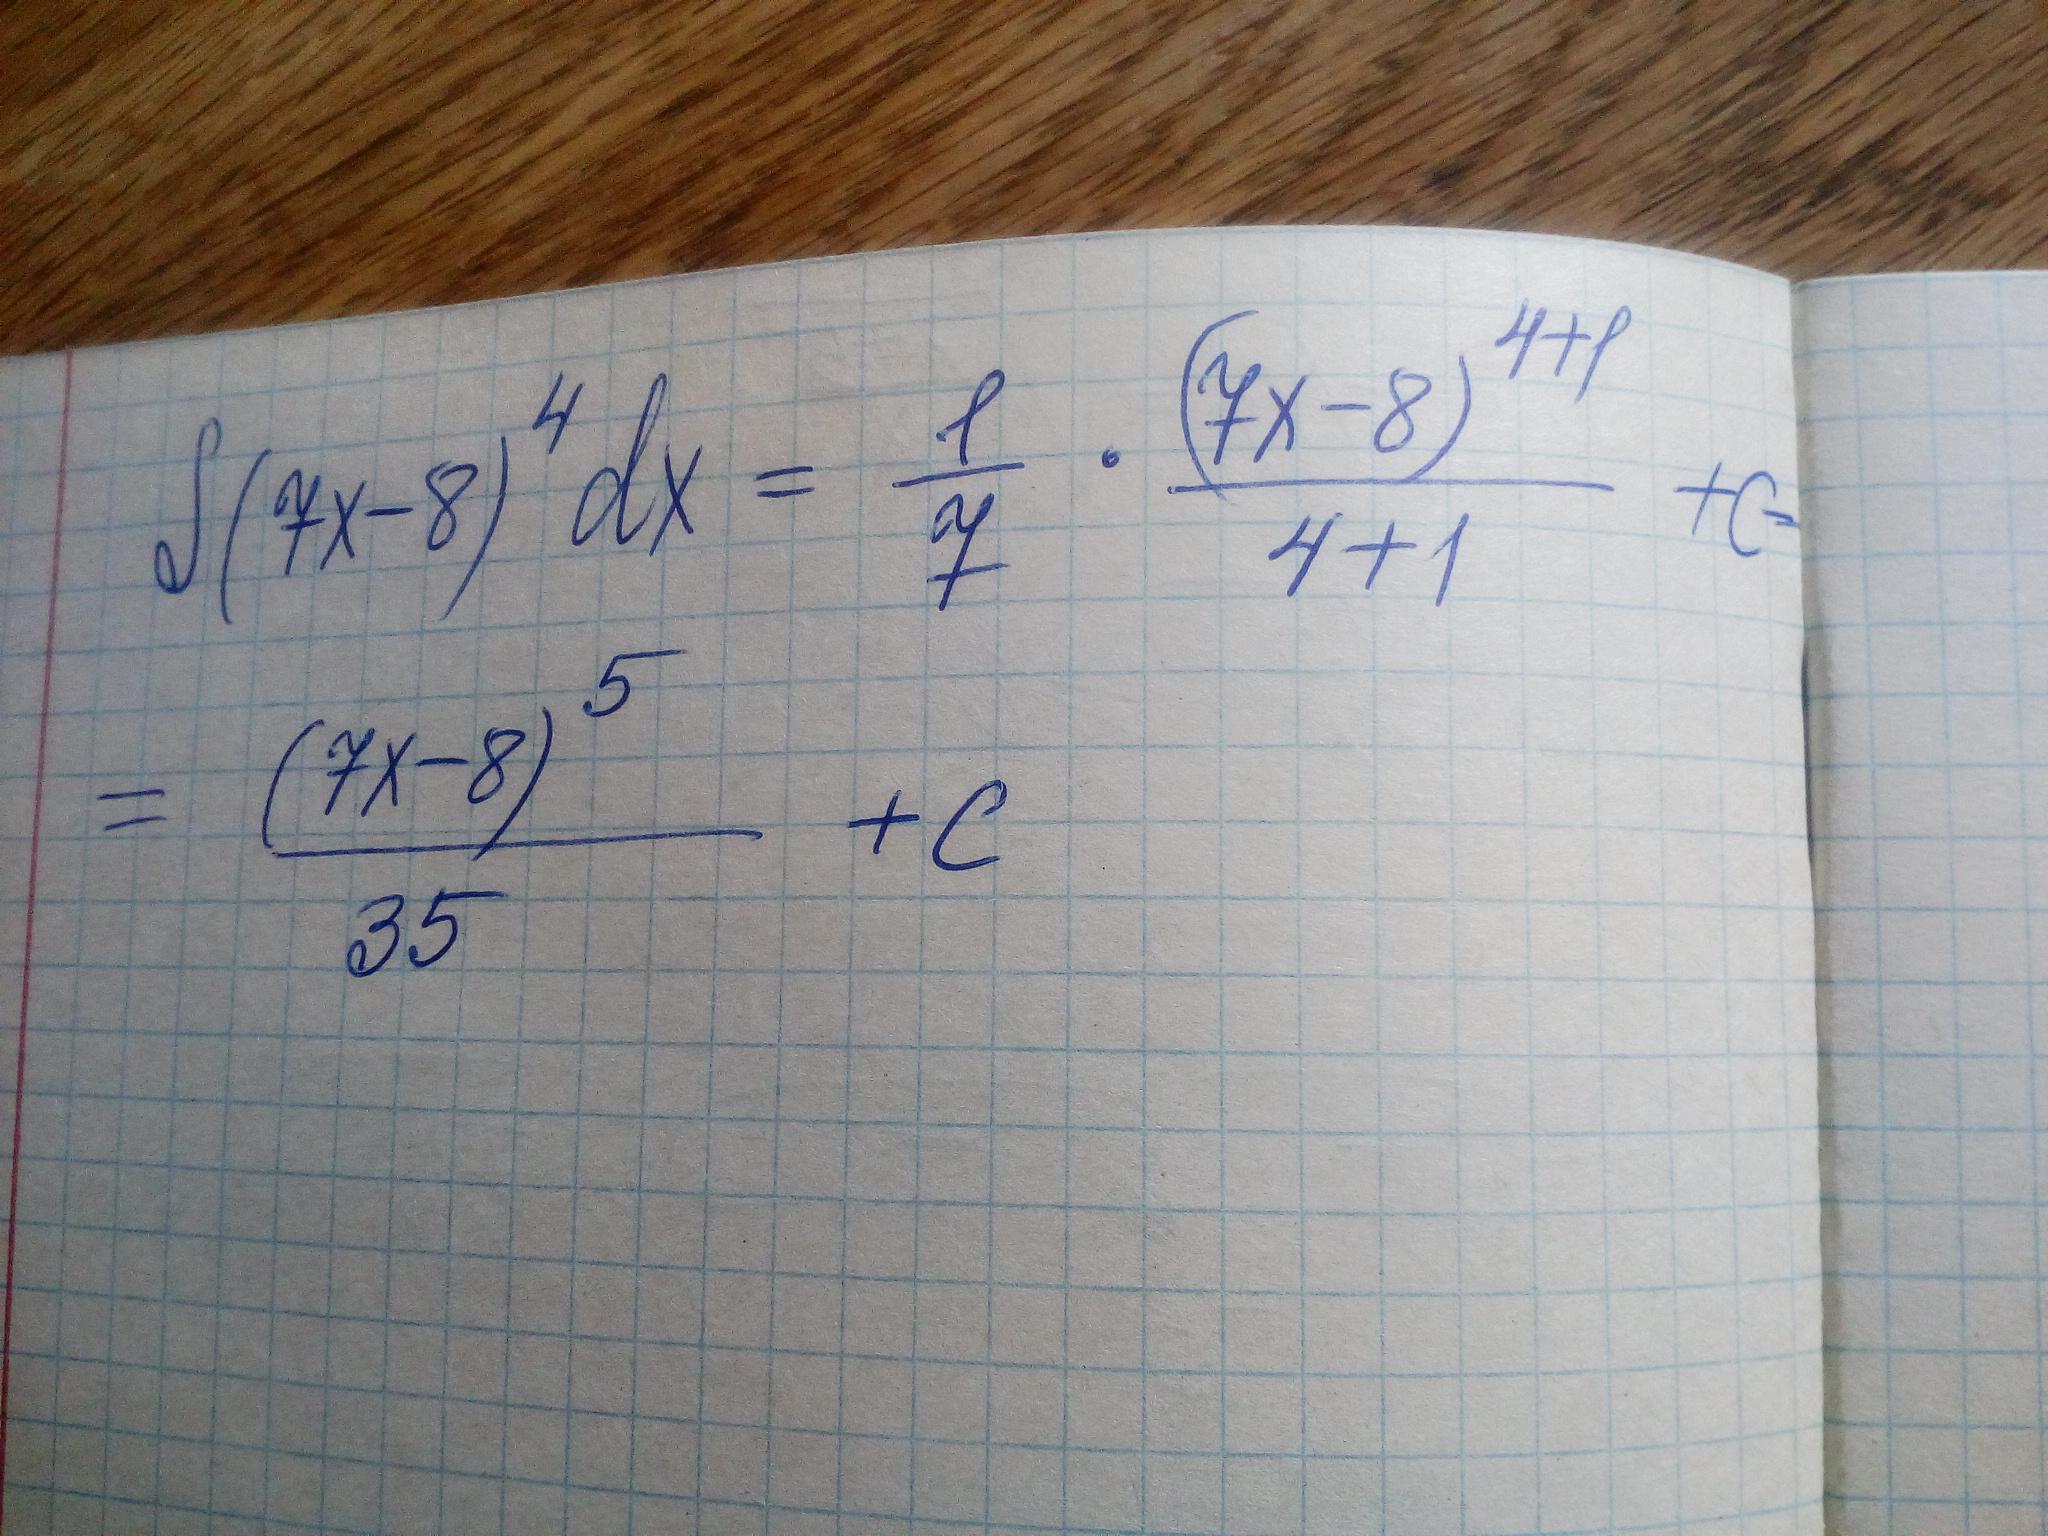 ∫(7x-8)^4 dx = 1/7 · (7x-8)^(4+1)/(4+1) + C =
= (7x-8)^5/35 + C